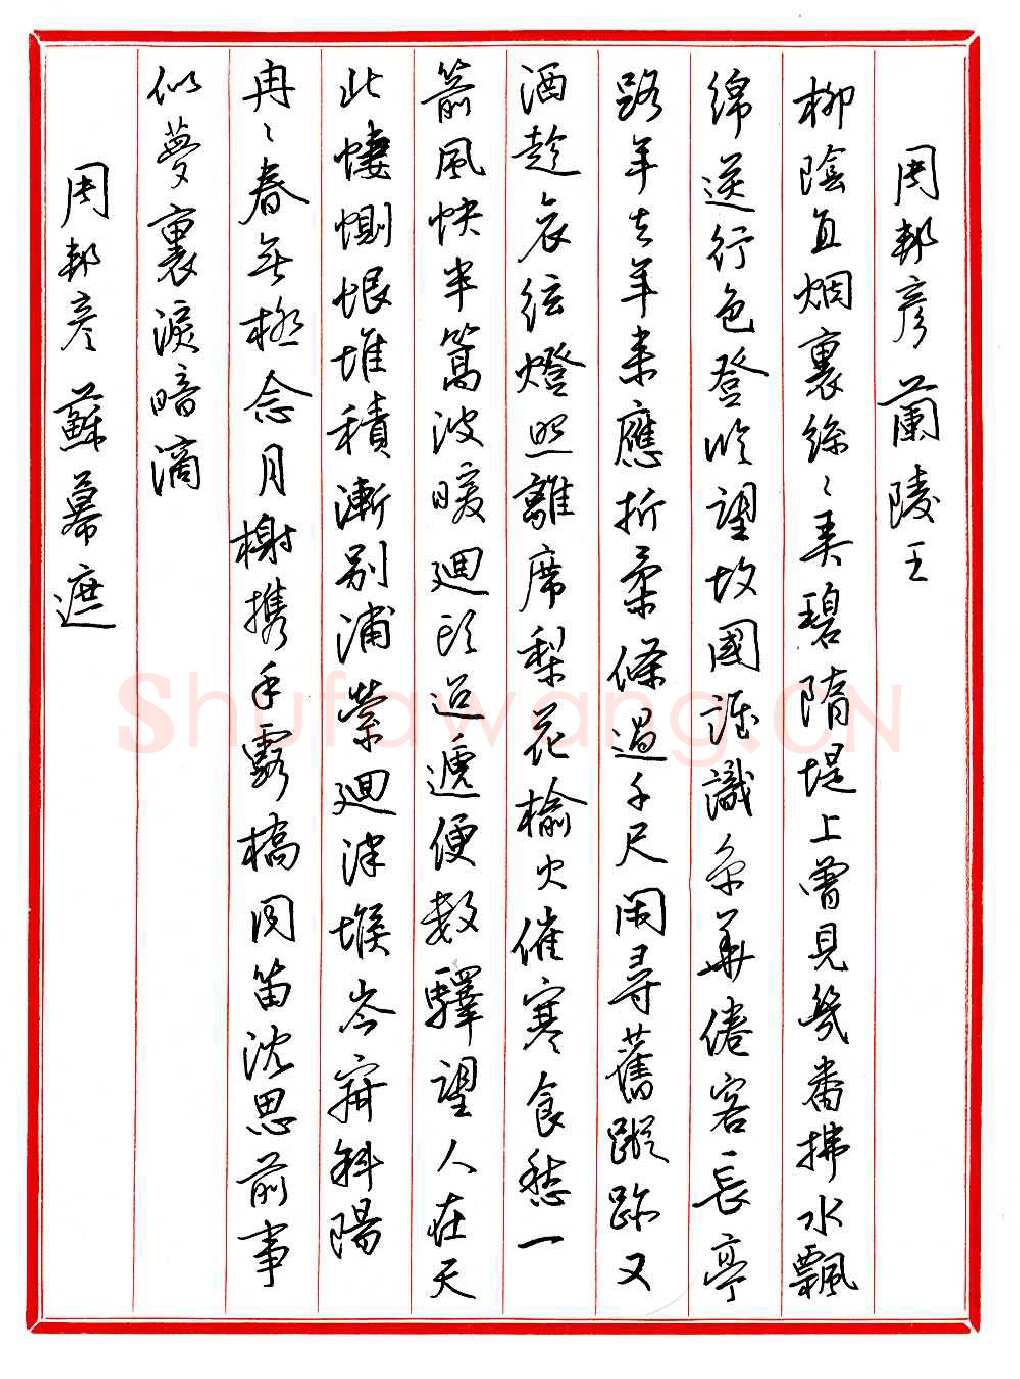 周邦彥 蘭陵王
柳陰直烟裏絲〻弄碧隋堤上曾見幾番拂水飄
綿送行色登臨望故國誰識京華倦客長亭
路年去年來應折柔條過千尺閑尋舊蹤跡又
酒趁哀絃燈照離席梨花榆火催寒食愁一
箭風快半篙波暖廻頭迢遞便數驛望人在天
北悽惻恨堆積漸別浦縈廻津堠岑寂斜陽
冉〻春無極念月榭携手露橋聞笛沈思前事
似夢裏淚暗滴
周邦彥 蘇幕遮
Shufawang.CN